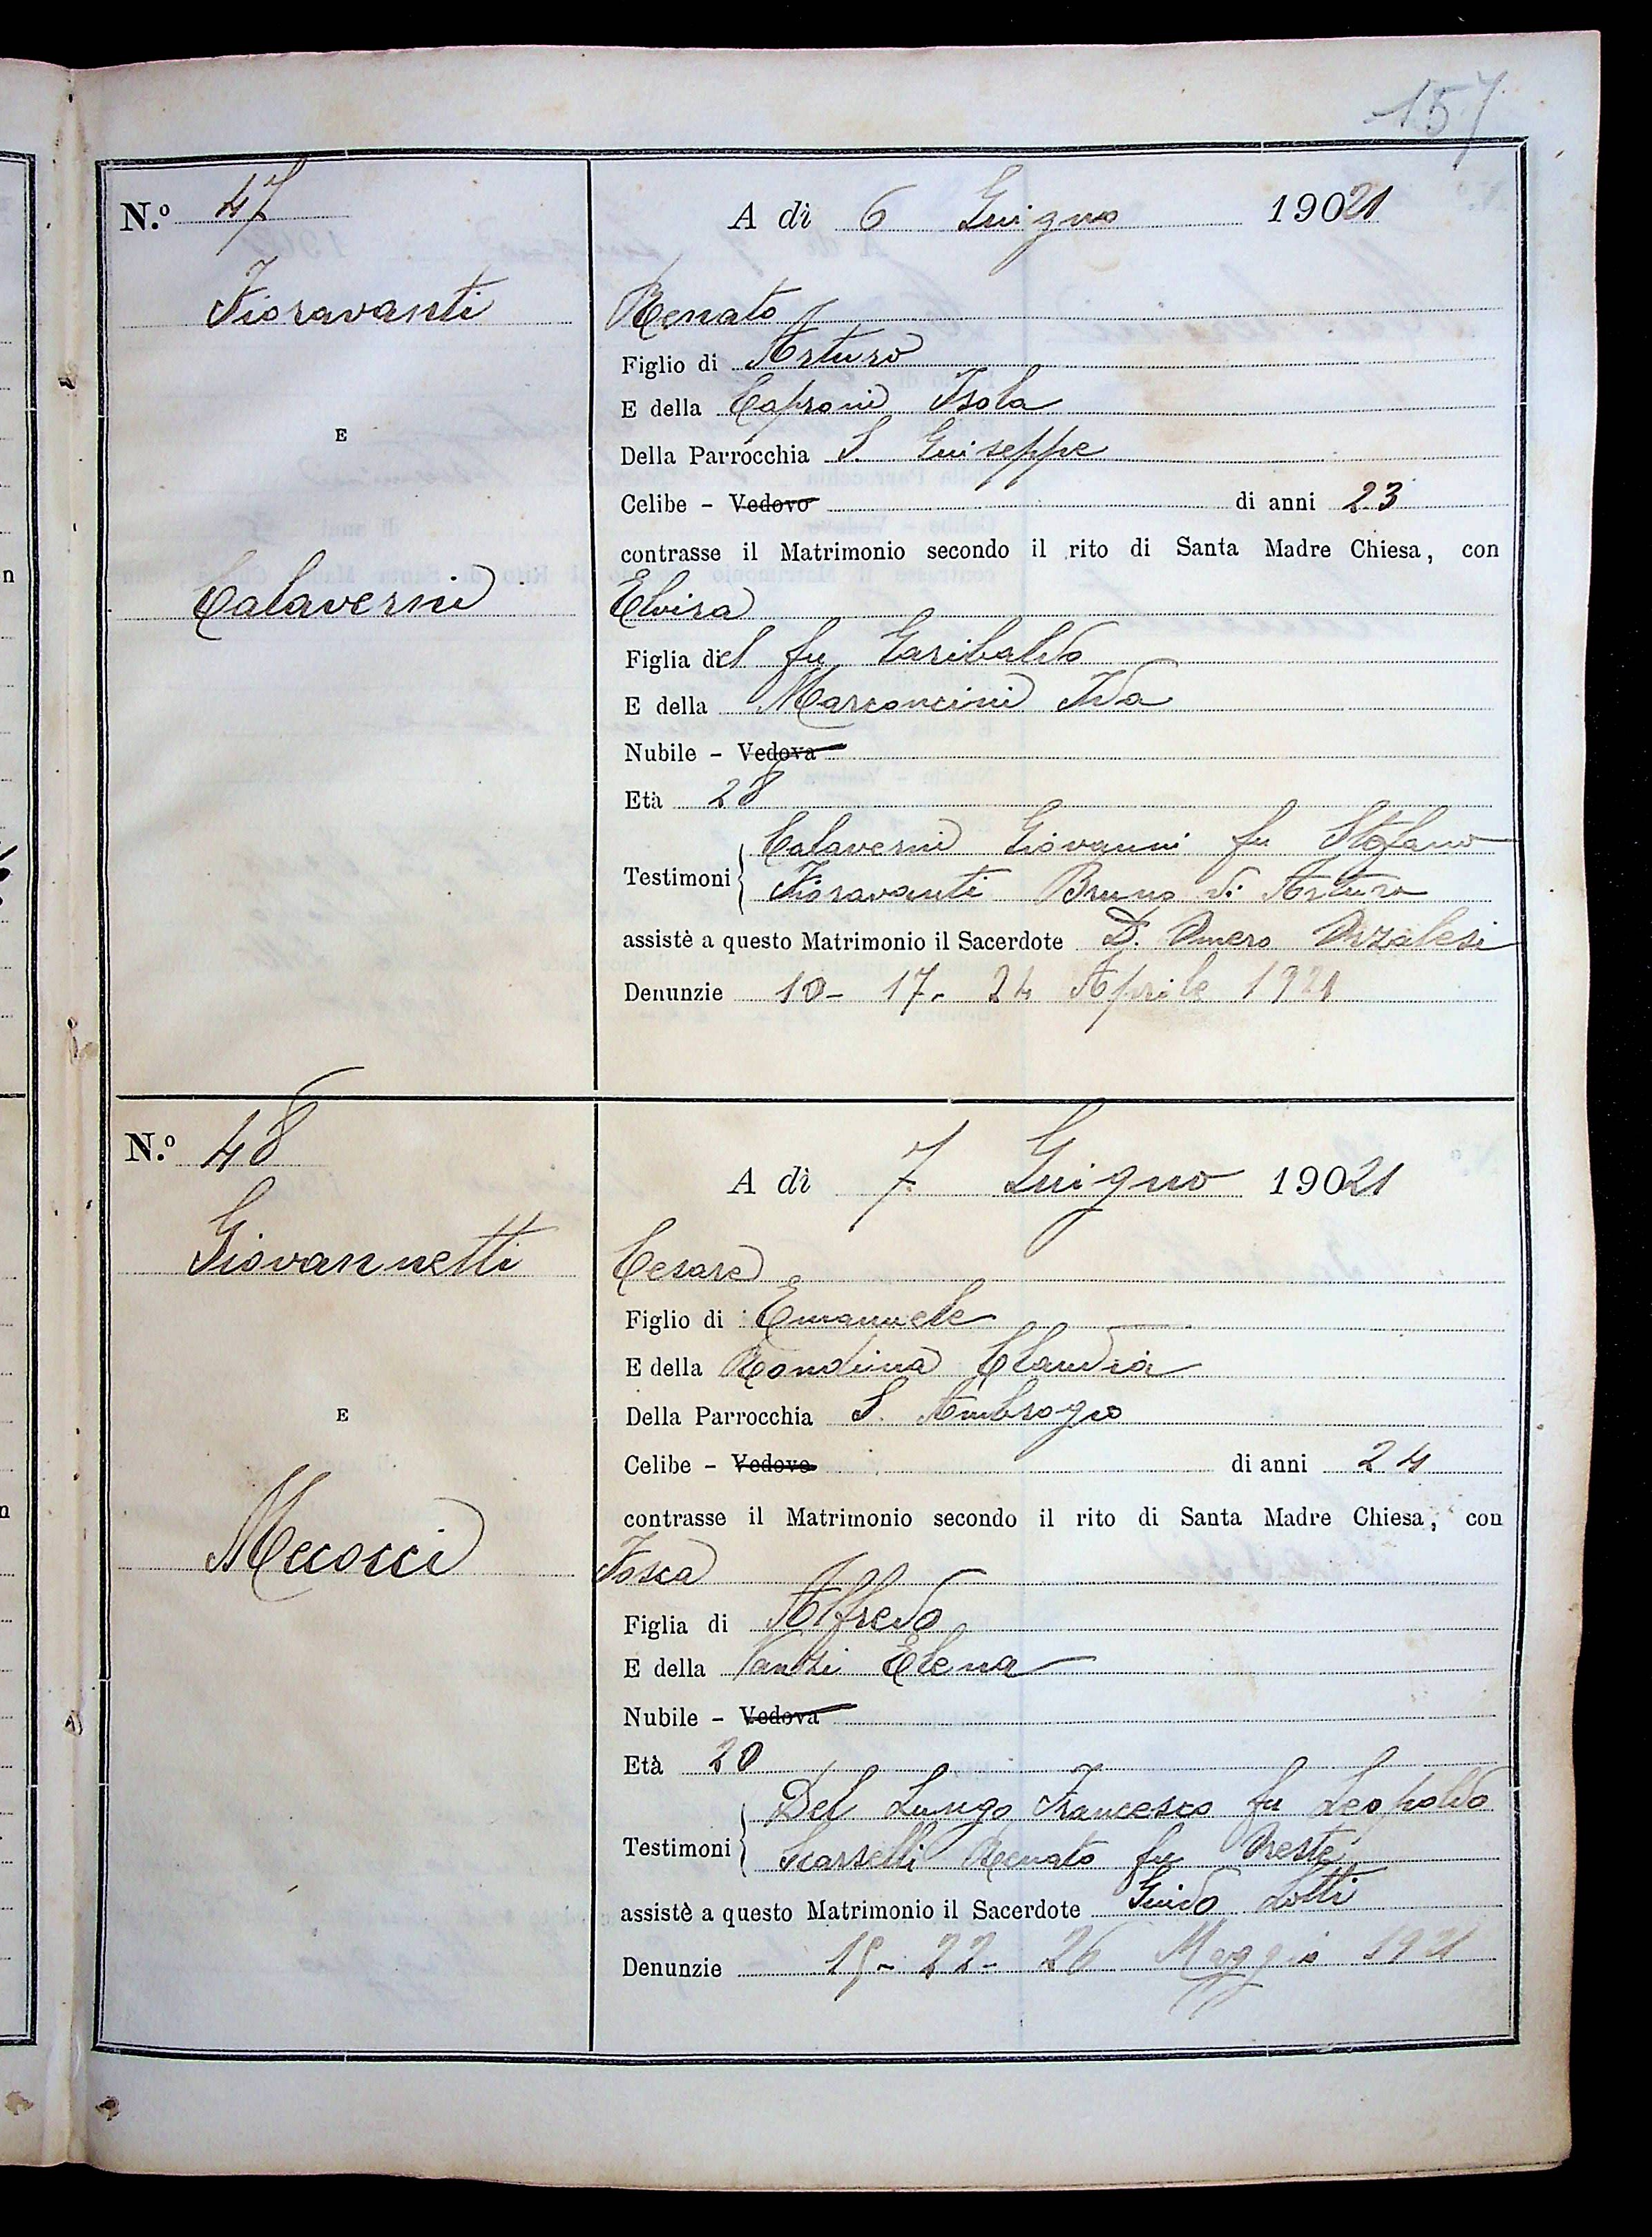 157
N.º 47
A dì 6 Giugno 19021
Fioravanti
Renato
Figlio di Arturo
E della Caproni Isola
E
Della Parrocchia S. Giuseppe
Celibe - Vedovo di anni 23
contrasse il Matrimonio secondo il rito di Santa Madre Chiesa, con
Calaverni
Elvira
Figlia del fu Garibaldo
E della Marconcini Ida
Nubile - Vedova
Età 28
Testimoni
Calaverni Giovanni fu Stefano
Fioravanti Bruno di Arturo
assistè a questo Matrimonio il Sacerdote D. Omero Orzalesi
Denunzie 10 - 17 - 24 Aprile 1921
N.º 48
A dì 7 Giugno 19021
Giovannetti
Cesare
Figlio di Emanuele
E della Rondina Claudia
E
Della Parrocchia S. Ambrogio
Celibe - Vedovo di anni 24
contrasse il Matrimonio secondo il rito di Santa Madre Chiesa, con
Mecocci
Fosca
Figlia di Alfredo
E della Elena
Nubile - Vedova
Età 20
Testimoni
Del Lungo Francesco fu Leopoldo
Scarselli Renato fu Oreste
assistè a questo Matrimonio il Sacerdote Guido Lotti
Denunzie 15 - 22 - 26 Maggio 1921